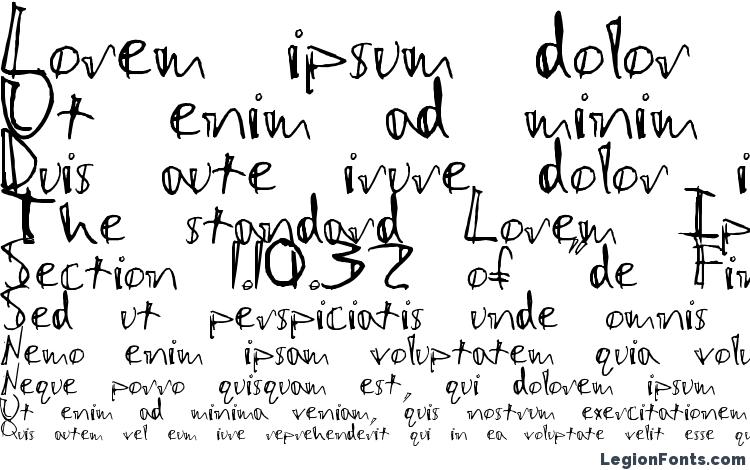 Lorem ipsum dolor
Ut enim ad minim
Duis aute irure dolor i
The standard Lorem Ip
Section 1.10.32 of "de Fin
Sed ut perspiciatis unde omnis
Nemo enim ipsam voluptatem quia volu
Neque porro quisquam est, qui dolorem ipsum
Ut enim ad minima veniam, quis nostrum exercitationem
Quis autem vel eum iure reprehenderit qui in ea voluptate velit esse qu
LegionFonts.com